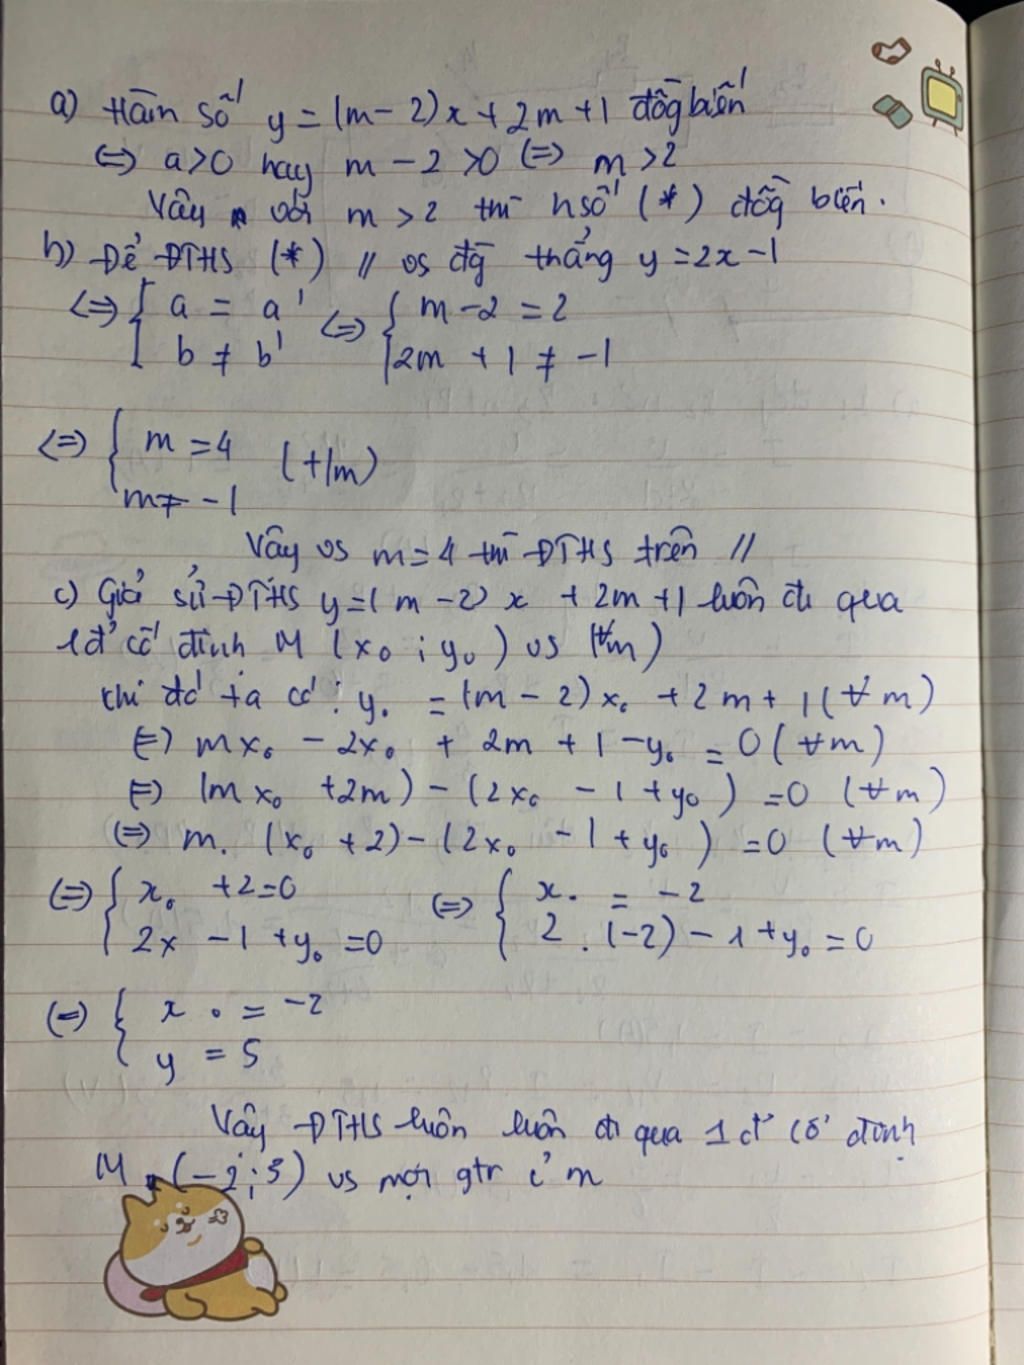 a) Hàm số y = (m - 2)x + 2m + 1 đồg biến
<=> a > 0 hay m - 2 > 0 <=> m > 2
Vây với m > 2 thì hsố (*) đồg biến.
b) Để ĐTHS (*) // vs đg thẳng y = 2x - 1
<=> { a = a' <=> { m - 2 = 2
b ≠ b' 2m + 1 ≠ -1
<=> { m = 4 (t/m)
m ≠ -1
Vây vs m = 4 thì ĐTHS trên //
c) Giả sử ĐTHS y = (m - 2) x + 2m + 1 luôn đi qua
1đ' cố định M (x₀ ; y₀) vs (∀m)
khi đó ta có : y₀ = (m - 2) x₀ + 2m + 1 (∀m)
<=> mx₀ - 2x₀ + 2m + 1 - y₀ = 0 (∀m)
<=> (mx₀ + 2m) - (2x₀ - 1 + y₀) = 0 (∀m)
<=> m. (x₀ + 2) - (2x₀ - 1 + y₀) = 0 (∀m)
<=> { x₀ + 2 = 0 <=> { x₀ = -2
2x - 1 + y₀ = 0 2 . (-2) - 1 + y₀ = 0
<=> { x₀ = -2
y = 5
Vây ĐTHS luôn luôn đi qua 1 đ' cố định
M (-2 ; 5) vs mọi gtr c̉ m